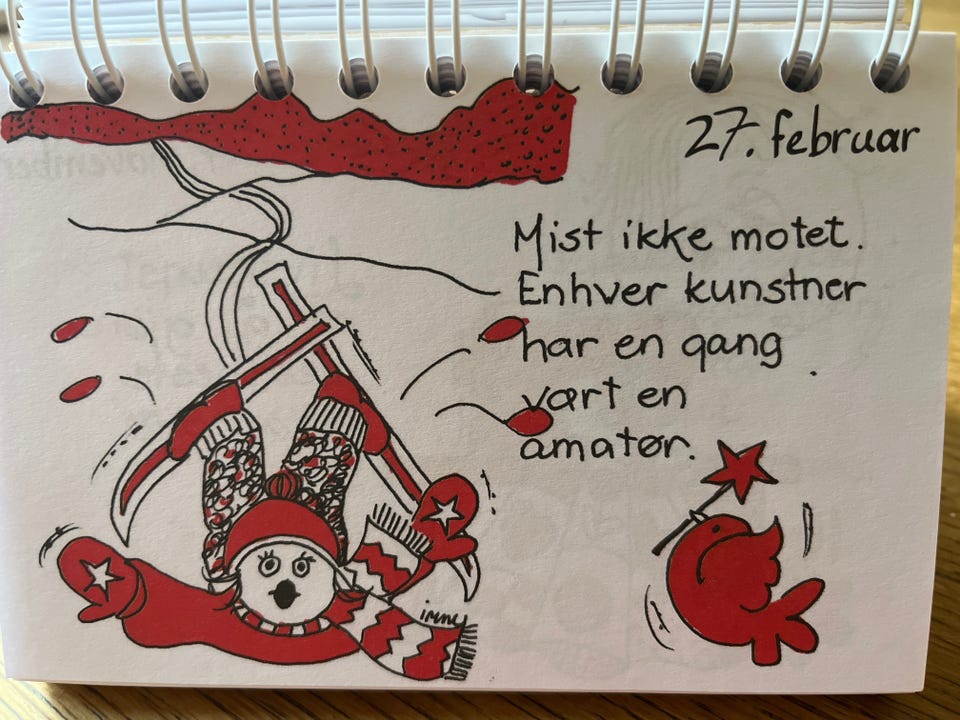 27. februar
Mist ikke motet.
Enhver kunstner
har en gang
vært en
amatør.